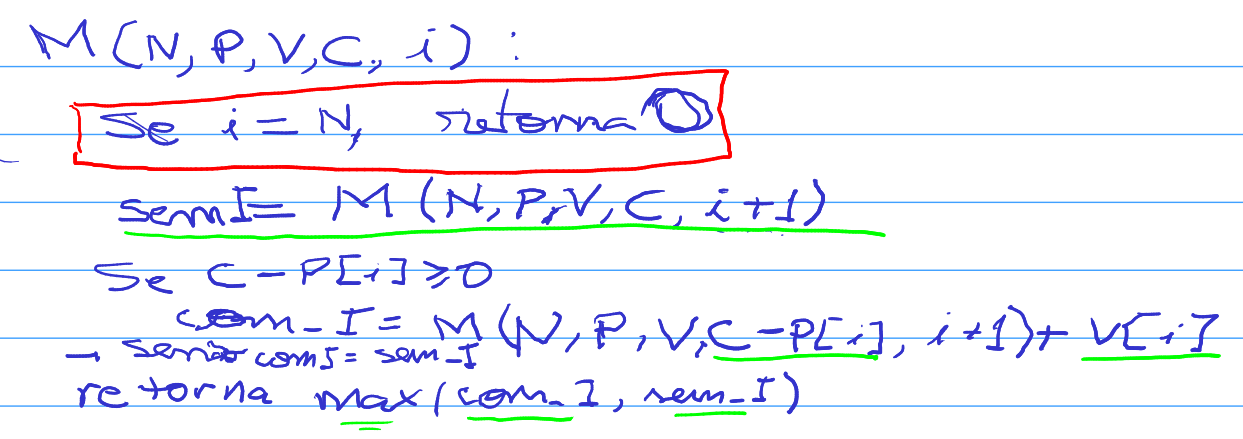 M(N, P, V, C, i):
Se i = N, retorna 0
semI = M(N, P, V, C, i+1)
Se C - P[i] ≥ 0
com_I = M(N, P, V, C - P[i], i+1) + V[i]
→ senão comI = sem_I
retorna max(com_I, sem_I)